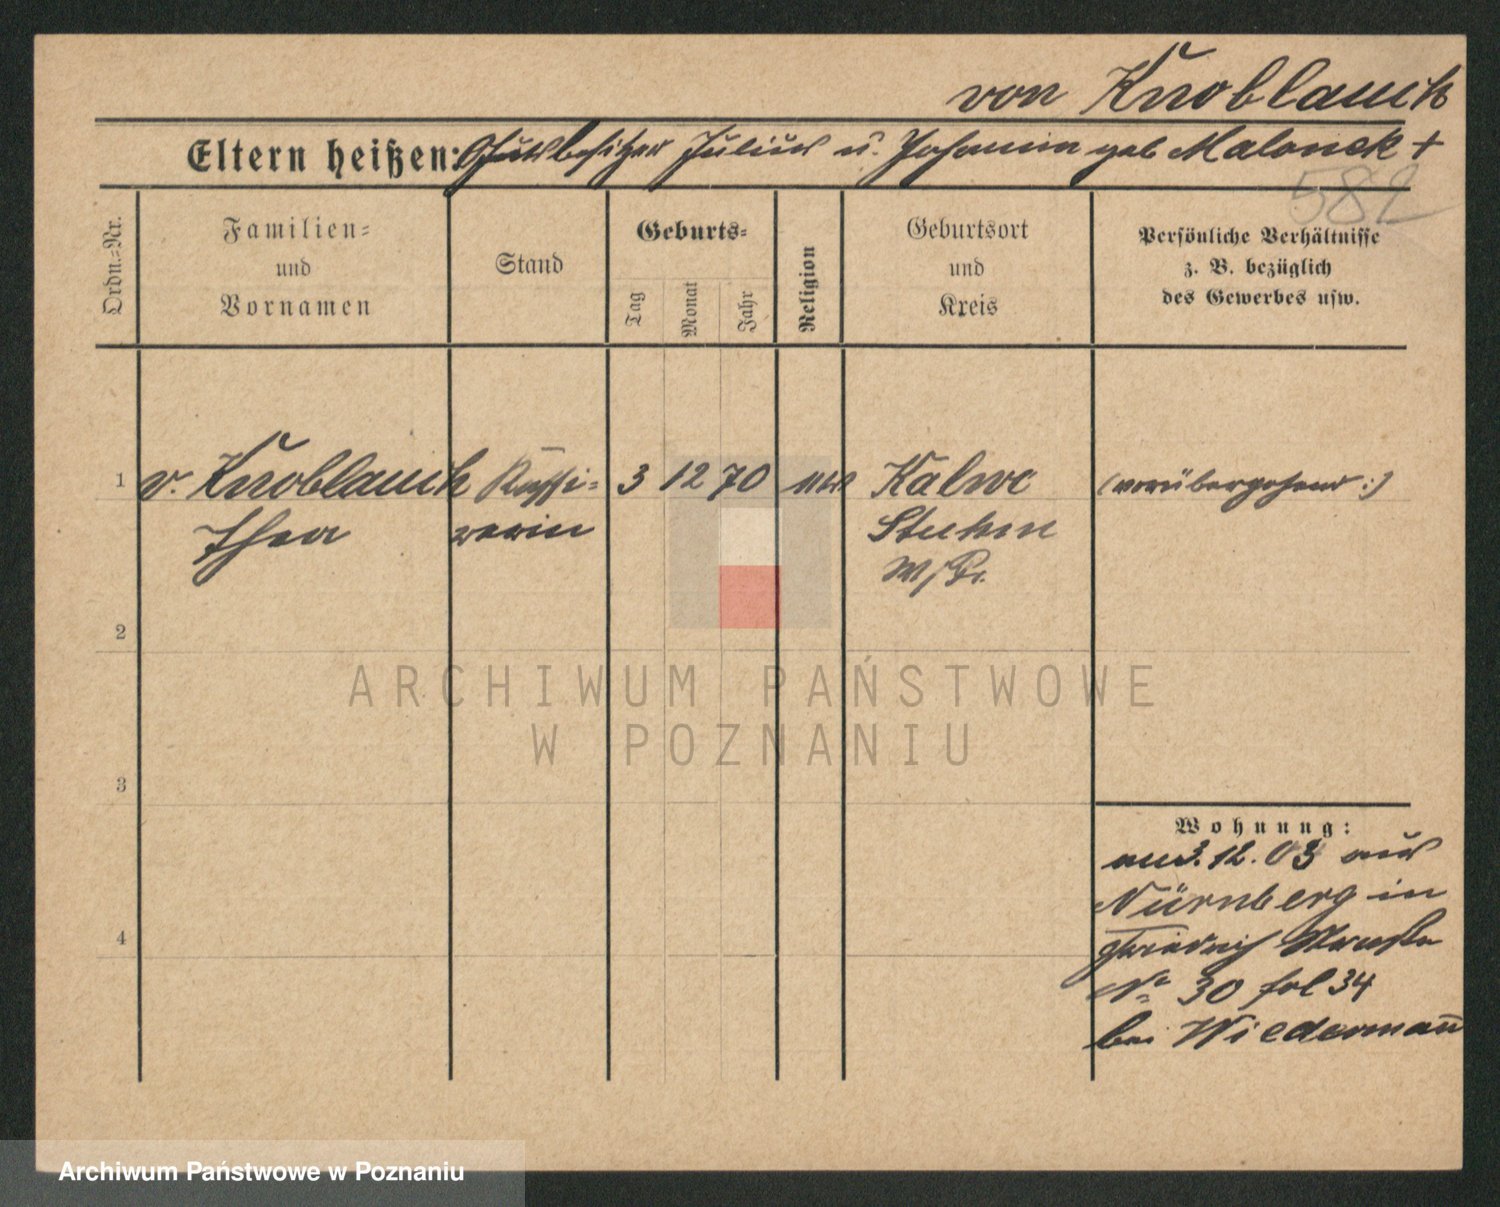 von Knoblauch
Eltern heißen: Gutsbesitzer Julius u. Johanna geb Malonek +
582
Ordn.-Nr.
Familien-
und
Vornamen
Stand
Geburts-
Tag
Monat
Jahr
Religion
Geburtsort
und
Kreis
Persönliche Verhältnisse
z. B. bezüglich
des Gewerbes usw.
1 v. Knoblauch Kassi- 3 12 70 Kalwe (vorübergehend:)
Thea rerin Stuhm
W/Pr.
2
3
4
Wohnung:
am 3. 12. 03 aus
Nürnberg in
Friedrich Straße
No 30 fol 34
bei Wiedermañ
ARCHIWUM PAŃSTWOWE
W POZNANIU
Archiwum Państwowe w Poznaniu